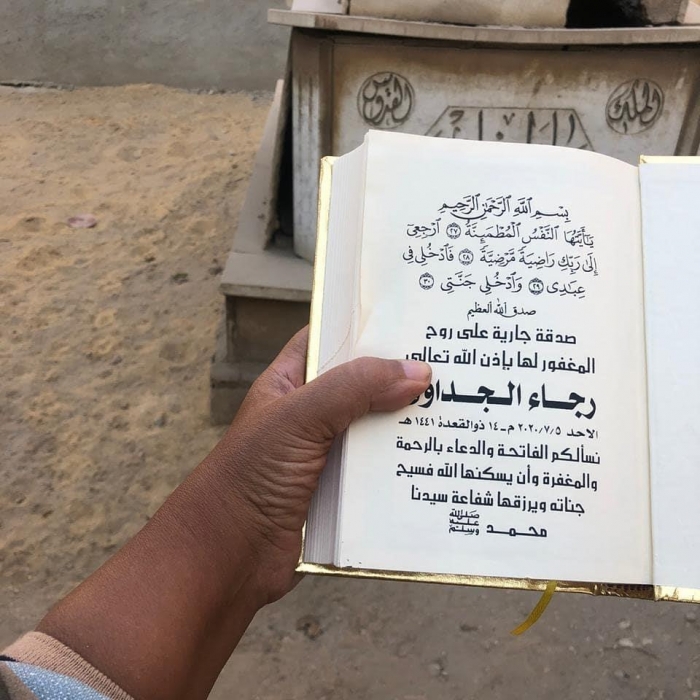 القدوس
الملك
بِسْمِ اللَّهِ الرَّحْمَٰنِ الرَّحِيمِ
يَٰٓأَيَّتُهَا النَّفْسُ الْمُطْمَئِنَّةُ ۝٢٧ ارْجِعِىٓ
إِلَىٰ رَبِّكِ رَاضِيَةً مَّرْضِيَّةً ۝٢٨ فَادْخُلِى فِى
عِبَٰدِى ۝٢٩ وَادْخُلِى جَنَّتِى ۝٣٠
صدق الله العظيم
صدقة جارية على روح
المغفور لها بإذن الله تعالى
رجاء
الاحد ٢٠٢٠/٧/٥ م - ١٤ ذوالقعدة ١٤٤١ هـ
نسألكم الفاتحة والدعاء بالرحمة
والمغفرة وأن يسكنها الله فسيح
جناته ويرزقها شفاعة سيدنا
محمد ﷺ